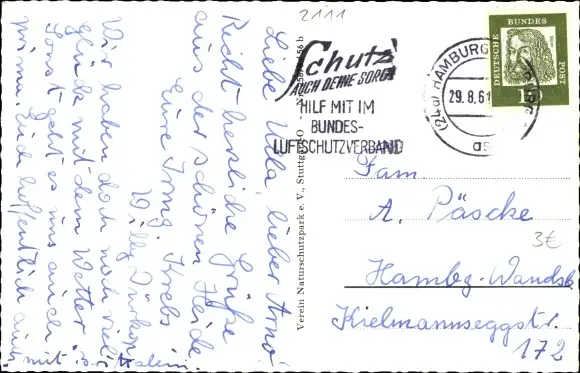 2111
Schutz
AUCH DEINE SORGE
HILF MIT IM
BUNDES-
LUFTSCHUTZVERBAND
(24a) HAMBURG
29.8.61
DEUTSCHE
BUNDES
POST
15
Liebe Ulla, lieber Arno!
Recht herzliche Grüße
aus der schönen Heide
Eure Irmg. Krebs
Willy
Wir haben doch noch viel
Glück mit dem Wetter
Sonst geht es uns auch
prima. Euch hoffentlich auch
mit
Verein Naturschutzpark e. V., Stuttgart-O
Fam.
A. Päscke
Hambg-Wandsb
Kielmannseggstr.
172
3€